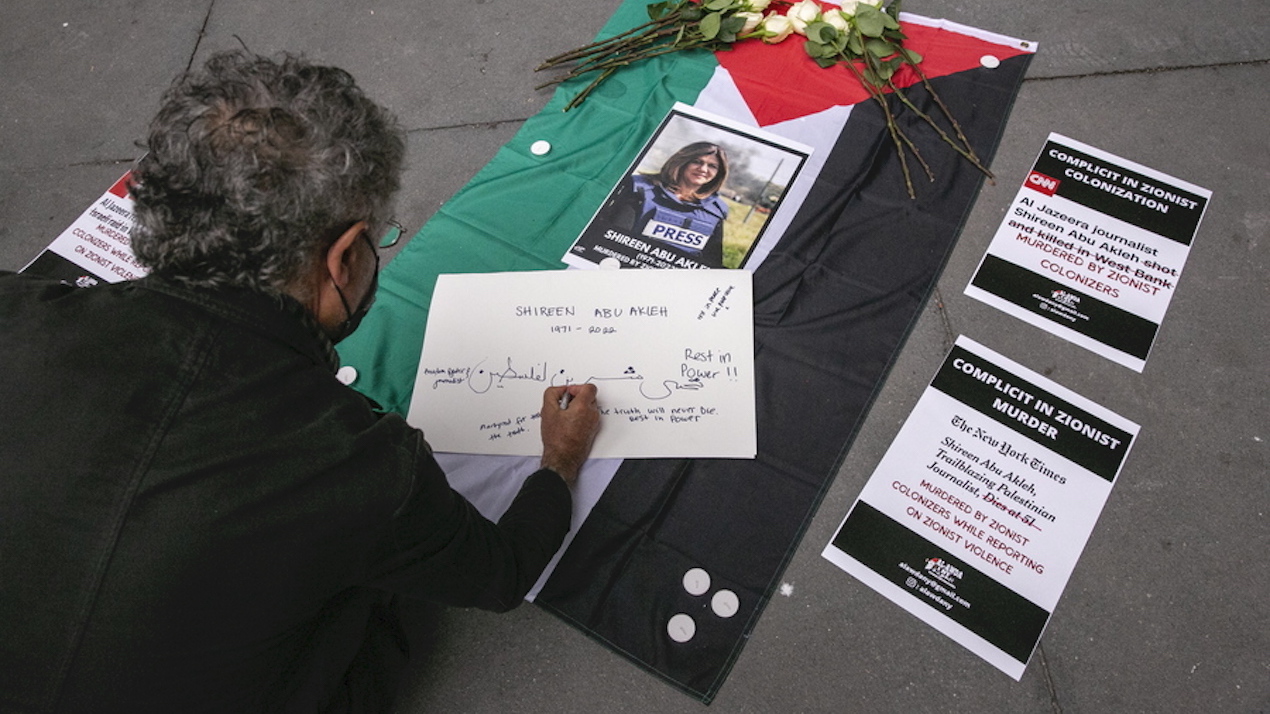 Al Jazeera
Israeli raid in
MURDERED
COLONIZERS WHILE
ON ZIONIST VIOLENCE
PRESS
SHIREEN ABU AKLEH
(1971-2022)
MURDERED BY ZIONIST
SHIREEN ABU AKLEH
1971 - 2022
Rest in
Power !!
فلسطين
martyred for
the truth.
the truth will never Die.
Rest in Power
COMPLICIT IN ZIONIST
COLONIZATION
CNN
Al Jazeera journalist
Shireen Abu Akleh shot
and killed in West Bank
MURDERED BY ZIONIST
COLONIZERS
ALAWDA
alawdany@gmail.com
: alawdany
COMPLICIT IN ZIONIST
MURDER
The New York Times
Shireen Abu Akleh,
Trailblazing Palestinian
Journalist, Dies at 51
MURDERED BY ZIONIST
COLONIZERS WHILE REPORTING
ON ZIONIST VIOLENCE
AL-AWDA
alawdany@gmail.com
: alawdany